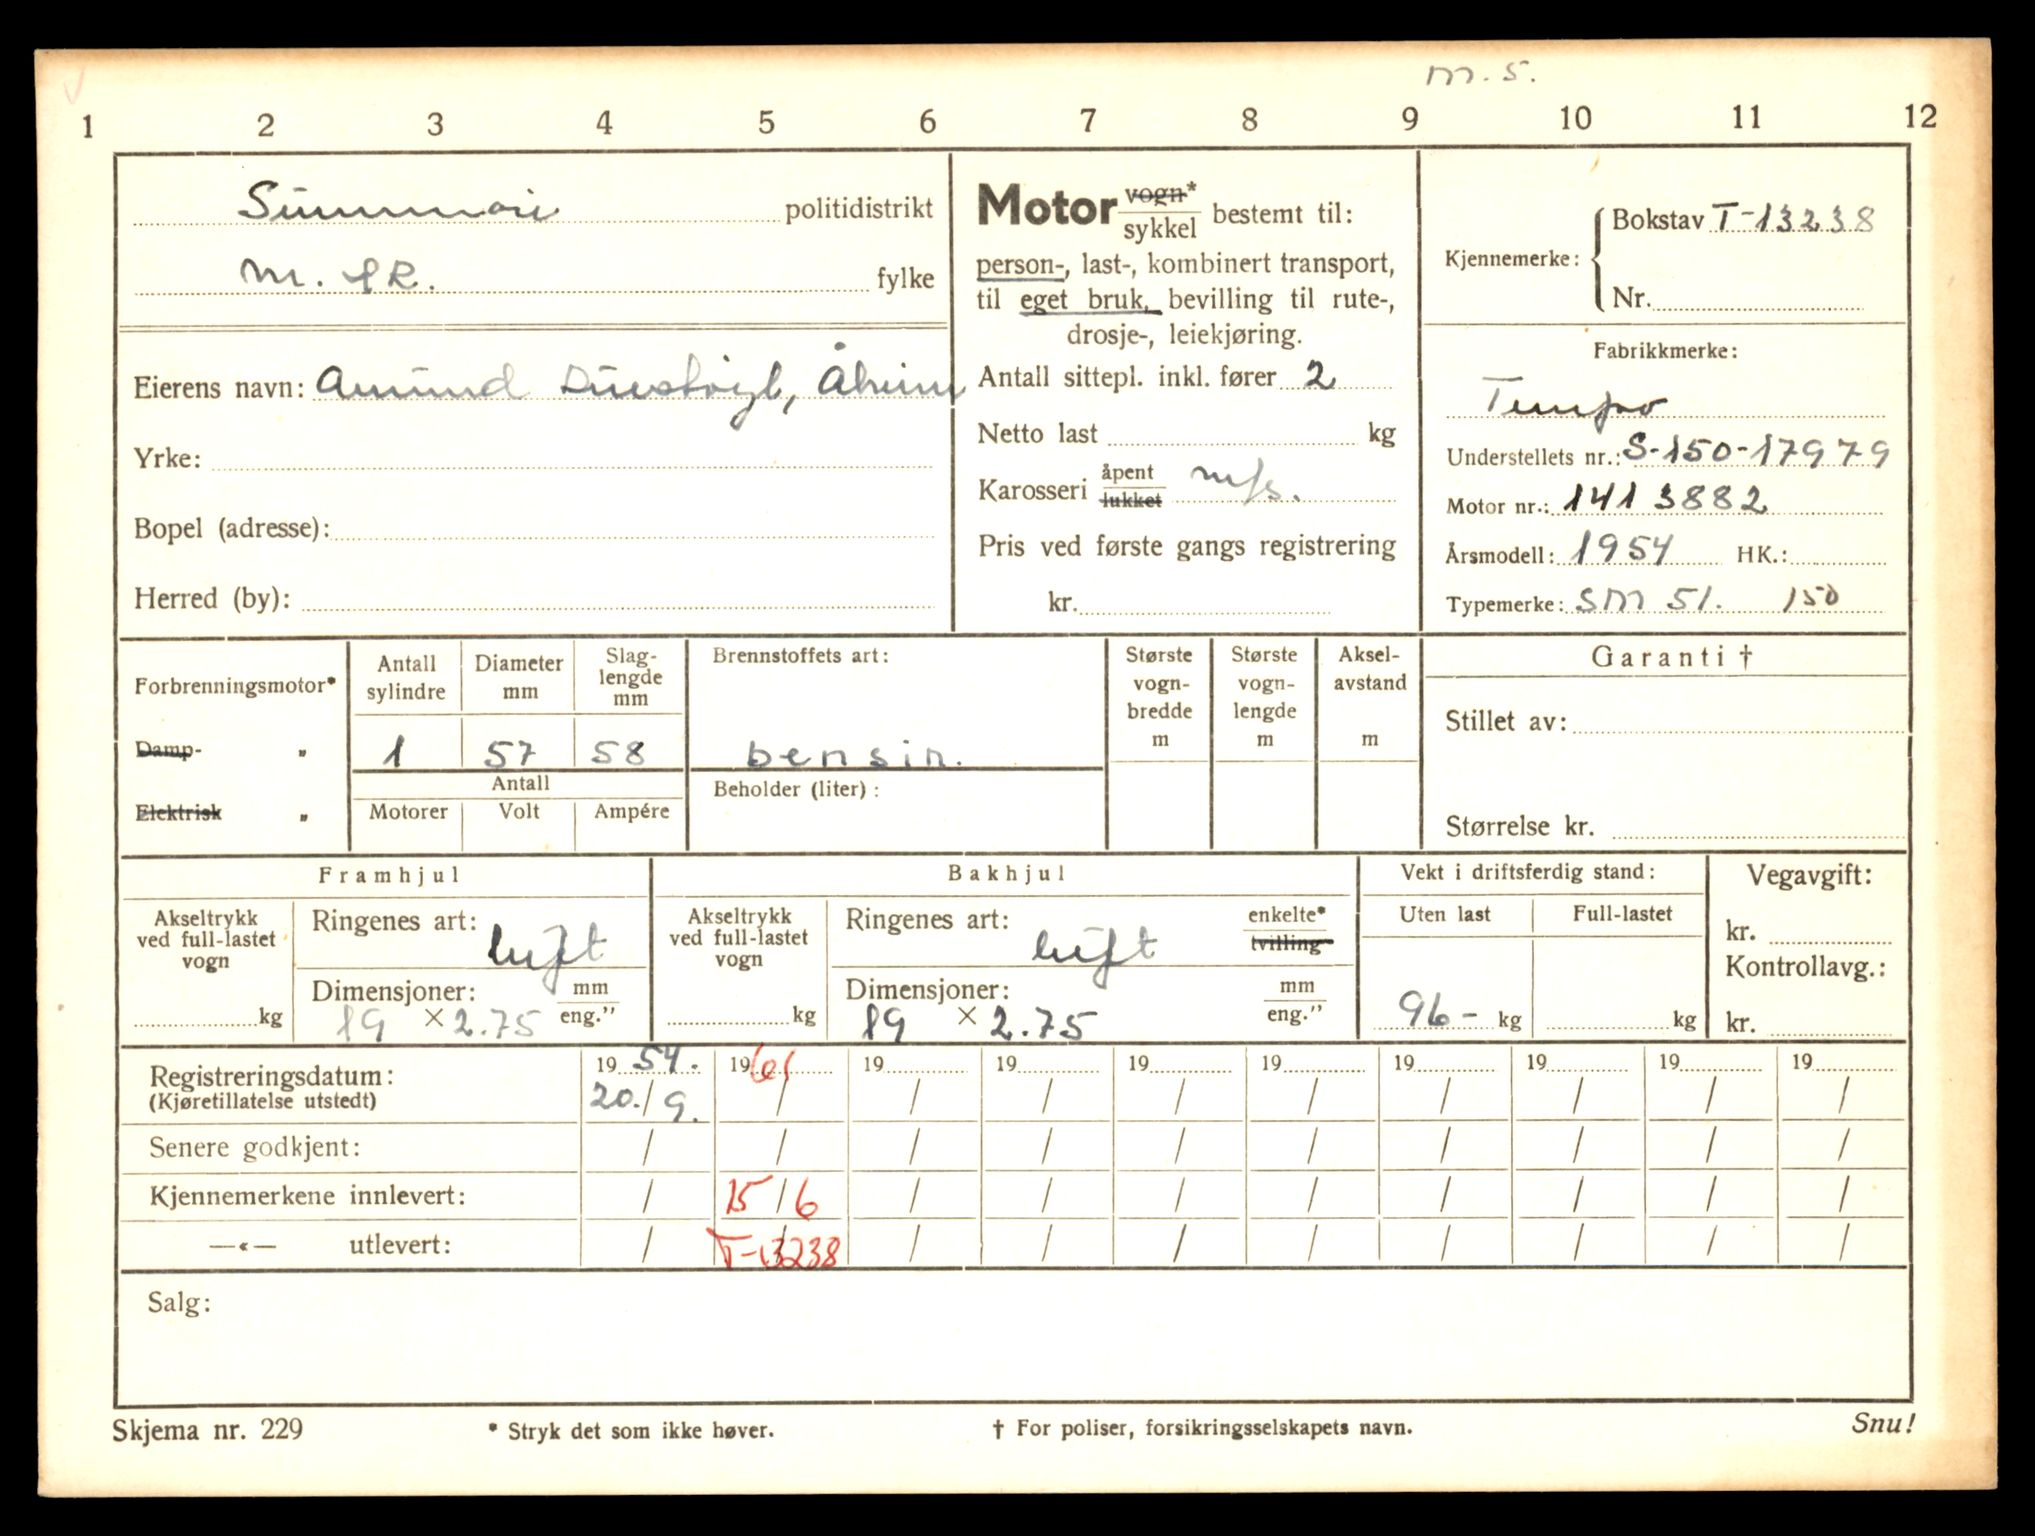 m. s.
1 2 3 4 5 6 7 8 9 10 11 12
Sunnmøre politidistrikt
M. &R. fylke
Eierens navn: Amund Åheim
Yrke:
Bopel (adresse):
Herred (by):
Motor vogn*
sykkel bestemt til:
person-, last-, kombinert transport,
til eget bruk, bevilling til rute-,
drosje-, leiekjøring.
Antall sittepl. inkl. fører 2
Netto last kg
Karosseri åpent
lukket m/s.
Pris ved første gangs registrering
kr.
Kjennemerke: Bokstav T-13238
Nr.
Fabrikkmerke:
Tempo
Understellets nr.: S-150-17979
Motor nr.: 1413882
Årsmodell: 1954 HK.:
Typemerke: SM 51. 150
Forbrenningsmotor*
Damp- „
Elektrisk „
Antall sylindre
Diameter mm
Slag-lengde mm
1 57 58
Antall
Motorer Volt Ampére
Brennstoffets art:
bensin.
Beholder (liter):
Største vogn-bredde m
Største vogn-lengde m
Aksel-avstand m
Garanti †
Stillet av:
Størrelse kr.
Framhjul
Akseltrykk
ved full-lastet
vogn
kg
Ringenes art: luft
Dimensjoner: mm
19 × 2.75 eng.”
Bakhjul
Akseltrykk
ved full-lastet
vogn
kg
Ringenes art: luft enkelte*
tvilling
Dimensjoner: mm
19 × 2.75 eng.”
Vekt i driftsferdig stand:
Uten last Full-lastet
96- kg kg
Vegavgift:
kr.
Kontrollavg.:
kr.
Registreringsdatum: 19 54. 19 61 19 19 19 19 19 19 19 19
(Kjøretillatelse utstedt) 20./9. / / / / / / / / /
Senere godkjent: / / / / / / / / / /
Kjennemerkene innlevert: / 15/6 / / / / / / / /
—«— utlevert: / T-13238 / / / / / / / /
Salg:
Skjema nr. 229 * Stryk det som ikke høver. † For poliser, forsikringsselskapets navn. Snu!